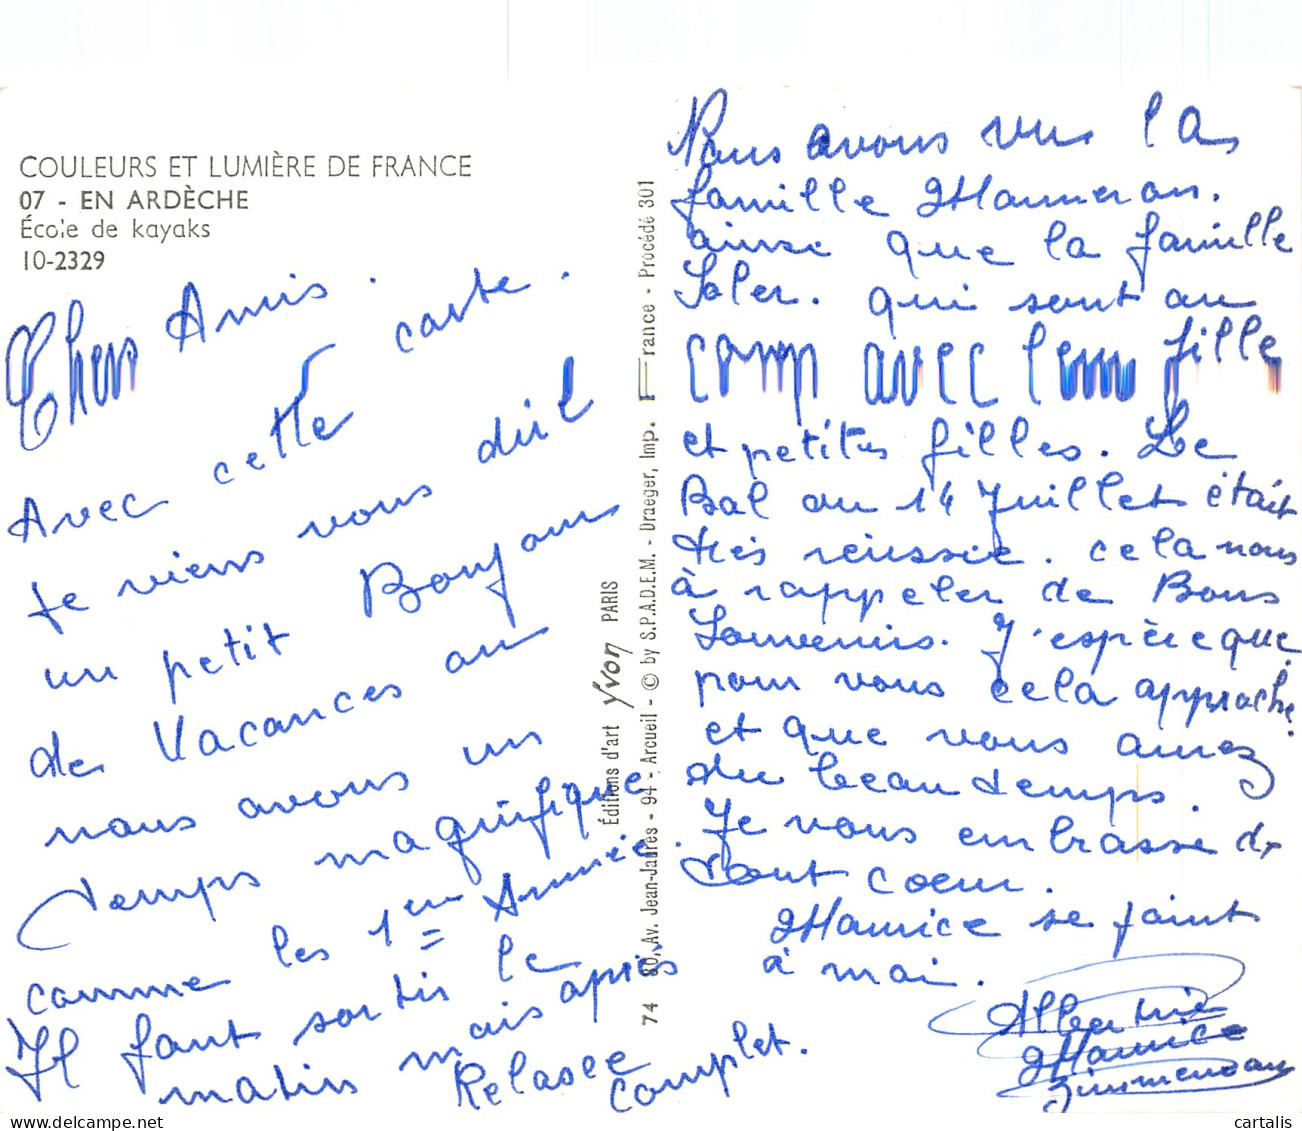 COULEURS ET LUMIÈRE DE FRANCE
07 - EN ARDÈCHE
École de kayaks
10-2329
Chers Amis.
Avec cette carte.
je viens vous dire
un petit Bonjour
de Vacances ou
nous avons un
temps magnifique
comme les 1ere Année.
Il faut sortir le
matin mais après
Relaxe complet.
Éditions d'art Yvon PARIS
74 80, Av. Jean-Jaurès - 94 - Arcueil - © by S.P.A.D.E.M. - Draeger, Imp. France - Procédé 301
Nous avons vu la
famille
ainse que la famille
Soler. qui sont au
camp avec leur fille
et petites filles. Le
Bal au 14 Juillet était
très réussie. cela nous
à rappeler de Bons
Souvenirs. J'espère que
pour vous cela approche
et que vous aurez
du beau temps.
Je vous embrasse de
tout coeur.
Maurice se joint
à moi.
Albertine
Maurice
cartalis